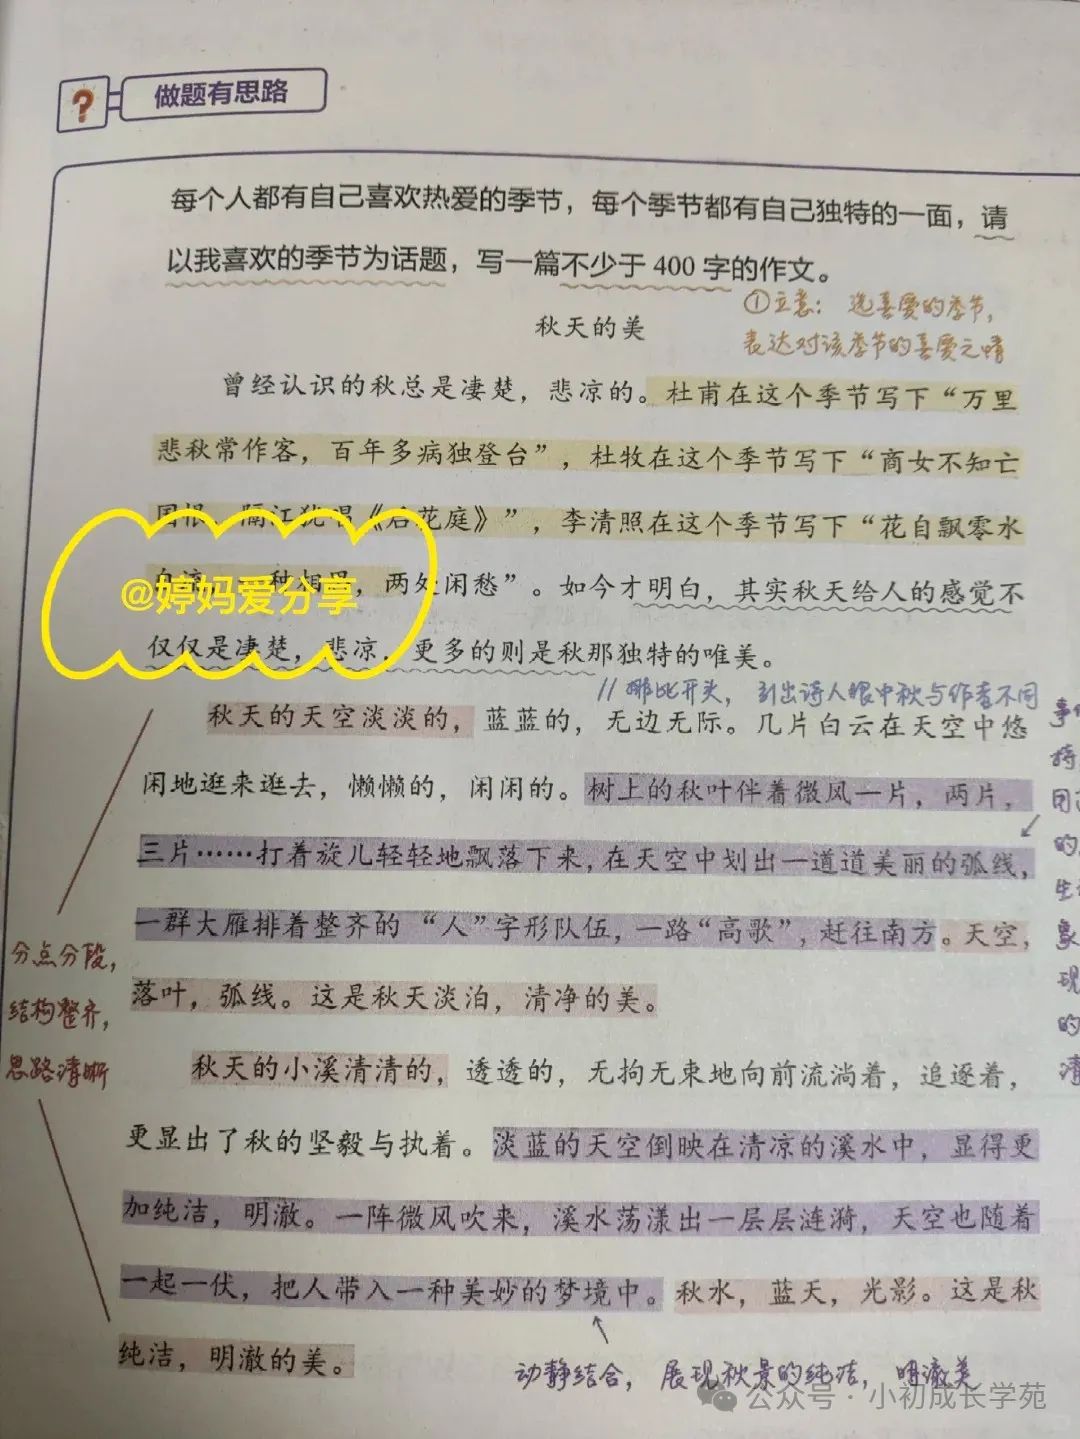 ?
做题有思路
每个人都有自己喜欢热爱的季节，每个季节都有自己独特的一面，请
以我喜欢的季节为话题，写一篇不少于 400 字的作文。
①立意：选喜爱的季节，
表达对该季节的喜爱之情
秋天的美
曾经认识的秋总是凄楚，悲凉的。杜甫在这个季节写下“万里
悲秋常作客，百年多病独登台”，杜牧在这个季节写下“商女不知亡
国恨，隔江犹唱《后花庭》”，李清照在这个季节写下“花自飘零水
自流，一种相思，两处闲愁”。如今才明白，其实秋天给人的感觉不
@婷妈爱分享
仅仅是凄楚，悲凉．更多的则是秋那独特的唯美。
//排比开头，引出诗人眼中秋与作者不同
秋天的天空淡淡的，蓝蓝的，无边无际。几片白云在天空中悠
闲地逛来逛去，懒懒的，闲闲的。树上的秋叶伴着微风一片，两片，
三片……打着旋儿轻轻地飘落下来，在天空中划出一道道美丽的弧线，
一群大雁排着整齐的“人”字形队伍，一路“高歌”，赶往南方。天空，
落叶，弧线。这是秋天淡泊，清净的美。
分点分段，
结构整齐，
思路清晰
秋天的小溪清清的，透透的，无拘无束地向前流淌着，追逐着，
更显出了秋的坚毅与执着。淡蓝的天空倒映在清凉的溪水中，显得更
加纯洁，明澈。一阵微风吹来，溪水荡漾出一层层涟漪，天空也随着
一起一伏，把人带入一种美妙的梦境中。秋水，蓝天，光影。这是秋
纯洁，明澈的美。
动静结合，展现秋景的纯洁，明澈美
公众号·小初成长学苑